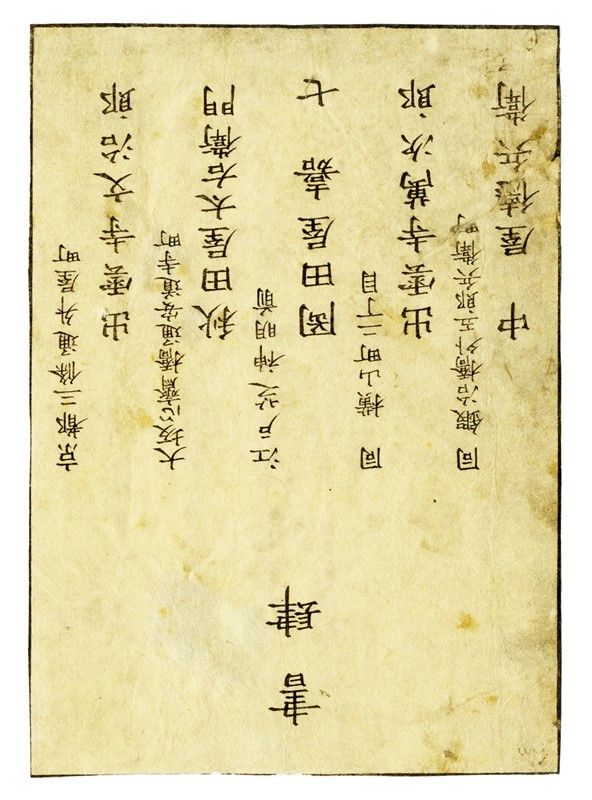 書肆
京都三條通升屋町
出雲寺文治郎
大坂心齋橋通安道寺町
秋田屋太右衛門
江戸芝神明前
岡田屋嘉七
同 横山町二丁目
出雲寺萬次郎
同 鍛治橋外五郎兵衛町
中屋徳兵衛